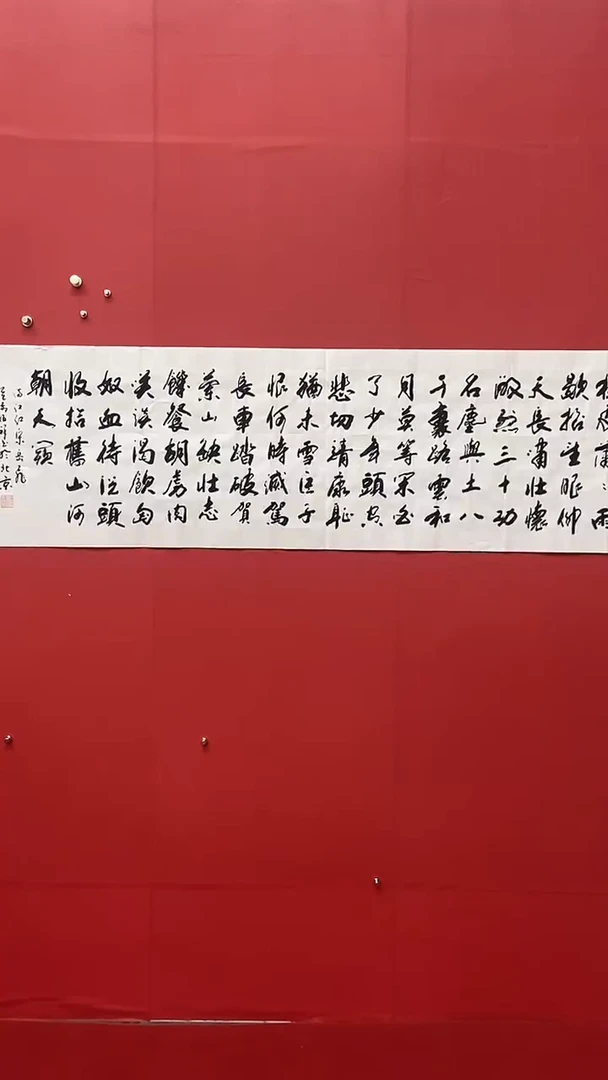 雨
歇抬望眼仰
天長嘯壯懷
激烈三十功
名塵與土八
千裏路雲和
月莫等閑白
了少年頭空
悲切靖康恥
猶未雪臣子
恨何時滅駕
長車踏破賀
蘭山缺壯志
饑餐胡虜肉
笑談渴飲匈
奴血待從頭
收拾舊山河
朝天闕
於北京